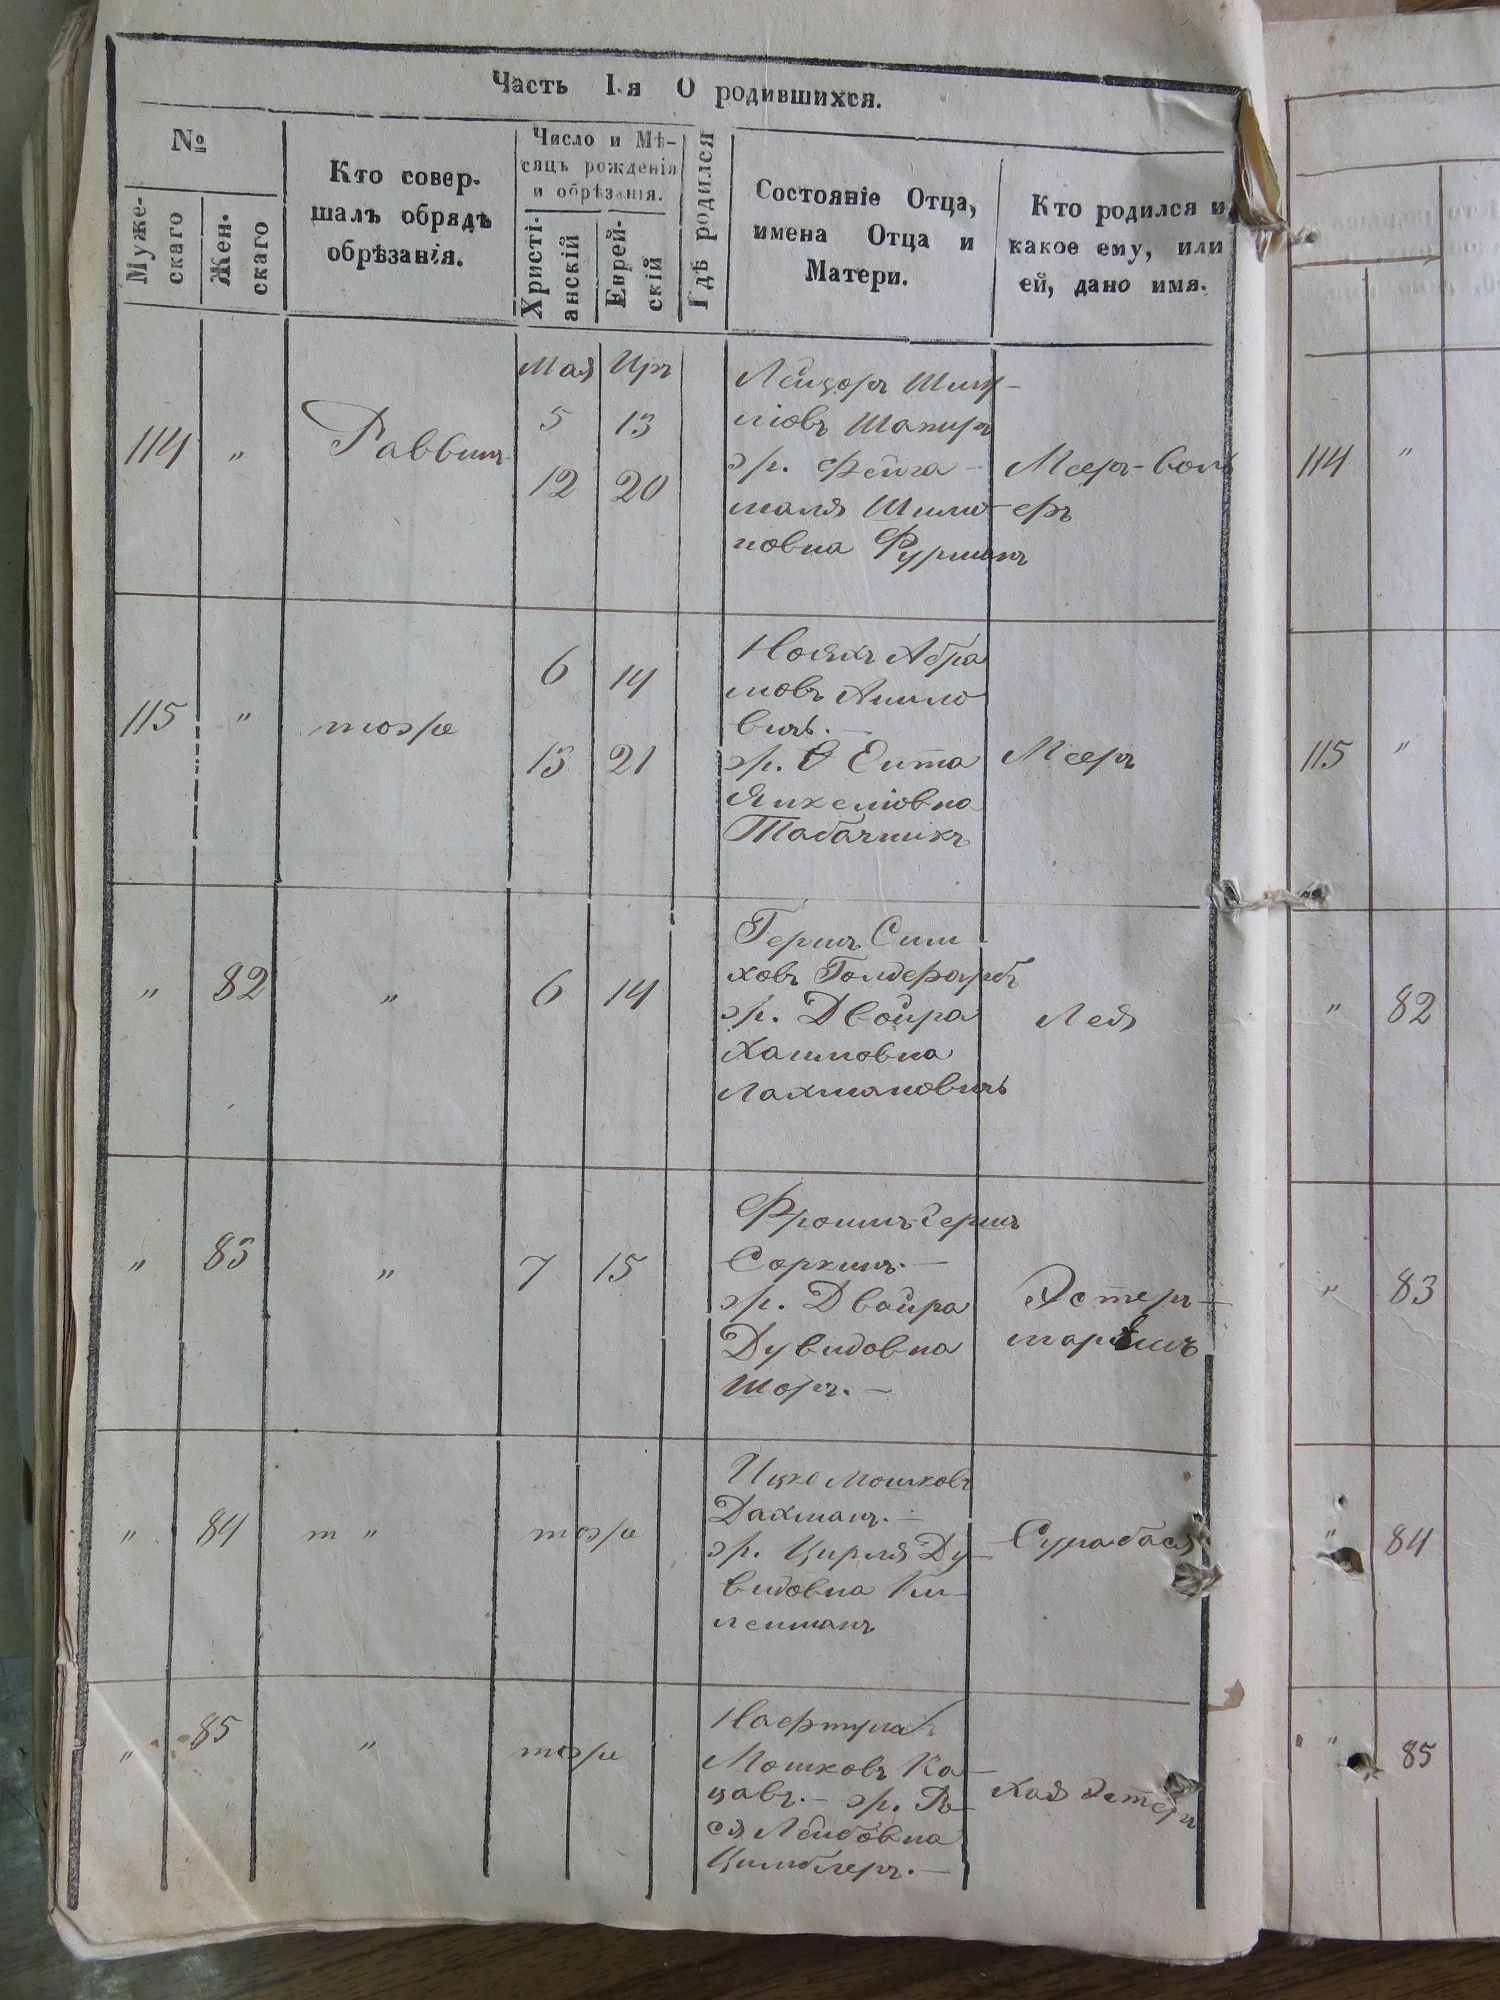 Часть I-я О родившихся.
№
Муже-
скаго
Жен-
скаго
Кто совер-
шалъ обрядъ
обрѣзанія.
Число и Мѣ-
сяцъ рожденія
и обрѣзанія.
Христі-
анскій
Еврей-
скій
Гдѣ родился
Состояніе Отца,
имена Отца и
Матери.
Кто родился и
какое ему, или
ей, дано имя.
114 „ Раввинъ
Мая Иръ
5 13
12 20
Лейзоръ Шму-
ліовъ Шапиръ
эр. Фейга
маля Шимо-
новна Фурманъ
Мееръ-воль
фъ
115 „ тоэре
6 14
13 21
Абра
мовъ
вичъ.
эр. Ента
Янкеліовна
Табачникъ
Мееръ
„ 82 „ 6 14
Гершъ Сим
ховъ Голдфарбъ
эр. Двойра
Хаимовна
Лахмановичъ
Лея
„ 83 „ 7 15
Фроимъ Гершъ
Соркинъ.
эр. Двойра
Дувидовна
Шоръ.
Эстеръ-
„ 84 т „ тоэре
Ицко Мошковъ
эр. Цирля Ду-
видовна
„ 85 „ тоэре
Нафтула
Мошковъ Ка-
цавъ. эр. Ра-
ся Лейбовна
Цимблеръ.
Хая Эстеръ
114 „
115 „
„ 82
„ 83
„ 84
„ 85